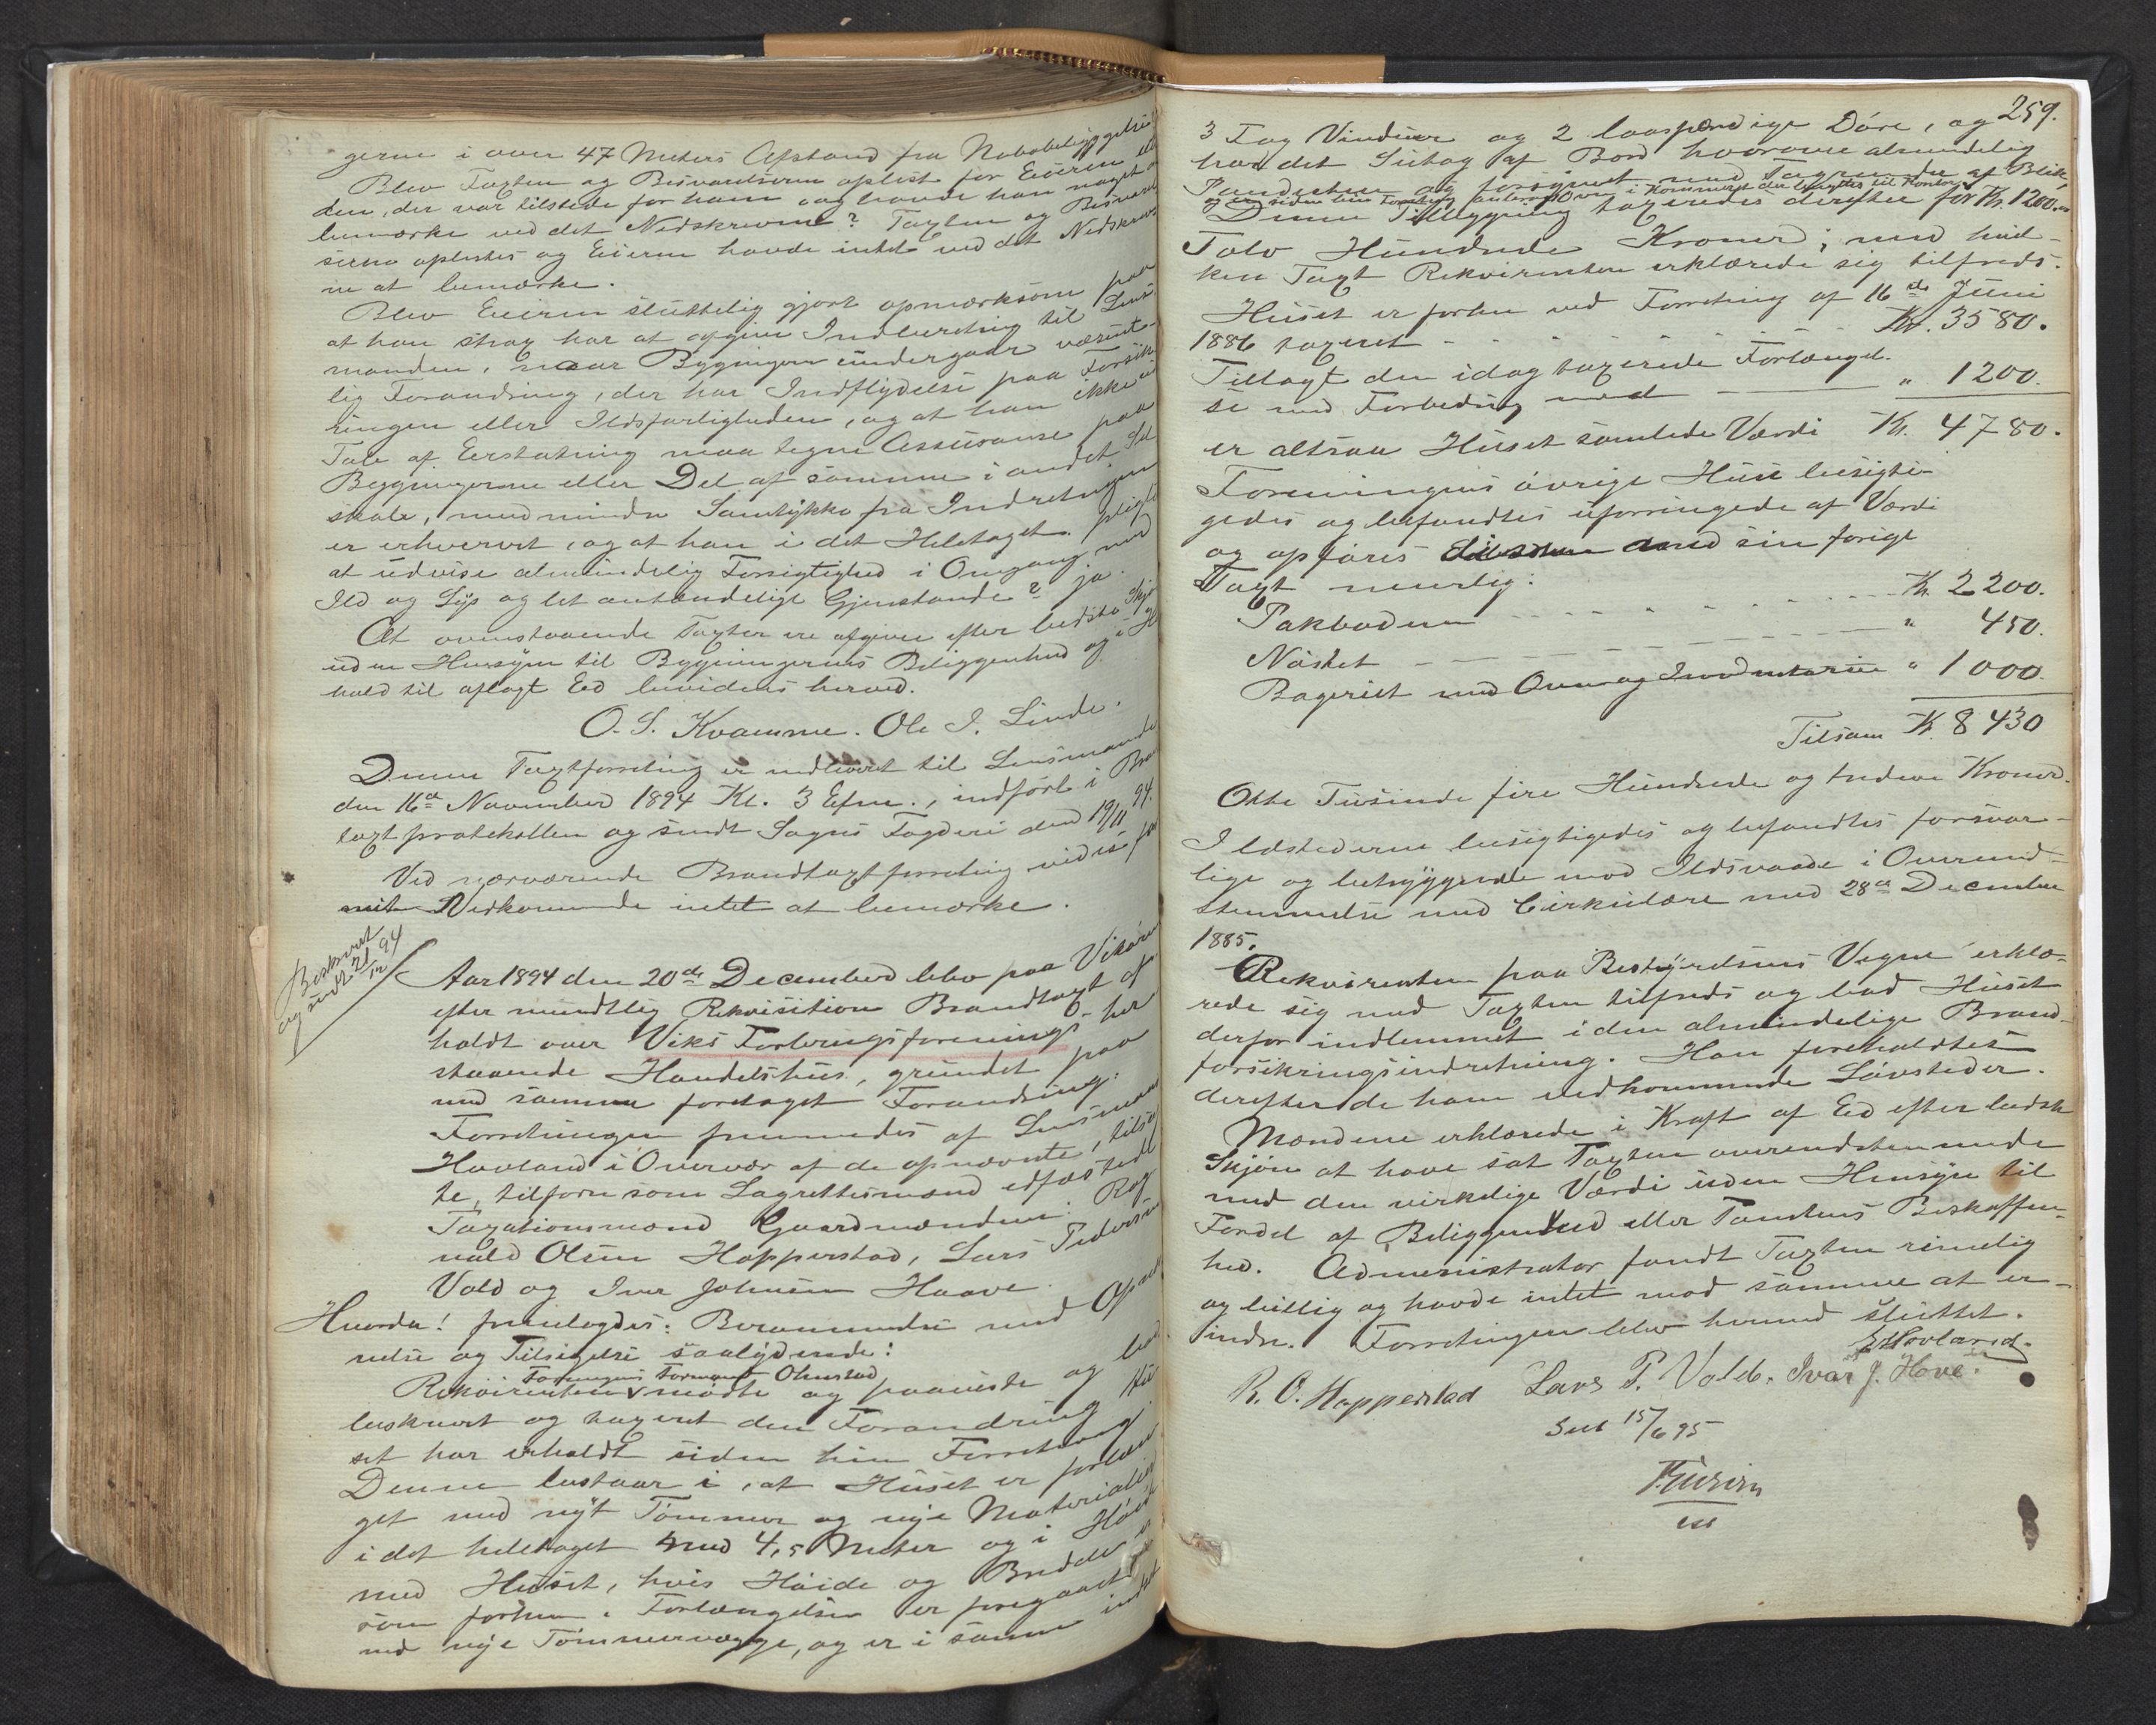 gerne i over 47 Meters Afstand fra Nabobebyggelse
Blev Taxten og Besvarelserne oplest for Eieren
den, der var tilstede for ham og havde han noget at
bemærke ved det Nedskrevne? Taxten og Besvarel
serne oplestes og Eieren havde intet ved det Nedskrev
ne at bemærke.
Blev Eieren sluttelig gjort opmærksom paa
at han strax har at opgive Indberetning til Lens
manden, naar Bygningen undergaar væsent-
lig Forandring, der har Indflydelse paa Forsik
ringen eller Ildsfarligheden, og at han ikke
Tab af Erstatning maa tegne Assuranse paa
Bygningerne eller Del af samme i andet Sel
skab, medmindre Samtykke fra Indretningen
er erhvervet, og at han i det Heletaget pligt
at udvise almindelig Forsigtighed i Omgang med
Ild og Lys og let antændelige Gjenstande? ja.
At ovenstaaende Taxter ere afgivne efter bedste Skjøn
uden Hensyn til Bygningernes Beliggenhed og i
hold til aflagt Ed bevidnes herved.
O. S. Kvamme. Ole I. Linde.
Denne Taxtforretning er indleveret til Lensmanden
den 16de November 1894 Kl. 3 Efm., indført i Bra
taxtprotokollen og sendt Sogns Fogderi den 19/11 94.
Ved nærværende Brandtaxtforretning vides for
mit Vedkommende intet at bemærke.
Beskrevet
og sendt 21/12 94
Aar 1894 den 20de December blev paa Vikøren
efter mundtlig Rekvisition Brandtaxt af
holdt over Viks Forbrugsforenings her
staaende Handelshus, grundet paa
med samme foretaget Forandring.
Forretningen fremmedes af Lensmand
Hovland i Overvær af de opnævnte, tilsag
te, tilforn som Lagrettesmænd edfæstede
Taxationsmænd Gaardmændene: Rag
nald Olsen Hopperstad, Lars Pedersen
Vold og Iver Johnsen Haave.
Hvorda! fremlagdes: Berammelse med Opnæv
nelse og Tilsigelse saalydende:
Foreningens Formand Olmstad
Rekvirenten mødte og paaviste og bad
beskrevet og taxeret den Forandring Hu
set har erholdt siden hin Forretning
Denne bestaar i, at Huset er forlæn
get med nyt Tømmer og nye Materialier
i det heletaget med 4,5 Meter og i Høide
med Huset, hvis Høide og Bredde er
som forhen. Forlængelsen er foregaaet
med nye Tømmervægge, og er i samme indsat
259.
3 Fag Vinduer og 2 laasfærdige Døre, og
har det Sutag af Bord hvorover almindelig
Pandesten og forsynet med Tagrender af Blik,
og er siden hin Forretning anbragt Ovn i Kammeret der benyttes til Kontor
Denne Tilbygning taxeredes derefter for Kr. 1200.
Tolv Hundrede Kroner; med hvil-
ken Taxt Rekvirenten erklærede sig tilfreds.
Huset er forhen ved Forretning af 16de Juni
1886 taxeret - - - - - Kr. 3580.
Tillagt den idag taxerede Forlængel-
se med Forbedring med — " 1200.
er altsaa Huset samlede Værdi Kr. 4780.
Foreningens øvrige Huse besigti-
gedes og befandtes uforringede af Værdi
og opføres med sin forige
Taxt nemlig:
Pakboden - - - - - Kr. 2200.
Nøstet - - - - - " 450.
Bageriet med Ovn og Inventarie " 1000.
Tilsam K. 8430
Otte Tusinde fire Hundrede og tredive Kroner.
Ildstederne besigtigedes og befandtes forsvar-
lige og betryggende mod Ildsvaade i Overend-
stemmelse med Cirkulære med 28de December
1885.
Rekvirenten paa Bestyrelsens Vegne erklæ-
rede sig med Taxten tilfreds og bad Huset
derfor indlemmet i den almindelige Brand-
forsikringsindretning. Han foreholdtes
derefter de ham vedkommende Lovsteder.
Mændene erklærede i Kraft af Ed efter bedste
Skjøn at have sat Taxten overendstemmende
med den virkelige Værdi uden Hensyn til
Fordel af Beliggenhed eller Tomtens Beskaffen-
hed. Administrator fandt Taxten rimelig
og billig og havde intet mod samme at er-
indre. Forretningen blev hermed sluttet.
Hovland.
R. O. Hopperstad Lars P. Vold. Ivar J. Hove.
Seet 15/6 95